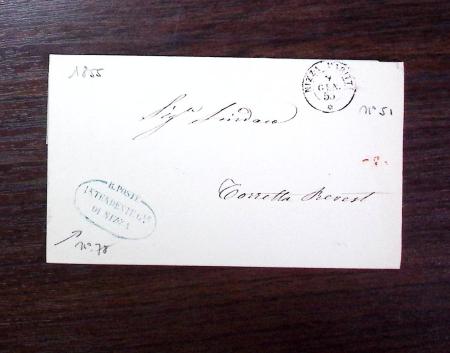 1855
NIZZA MARITT
GEN.
55
n° 51
Sig.r Sindaco
Torretta Revest
R. POSTE
INTENDENTE G.LE
DI NIZZA
n° 78